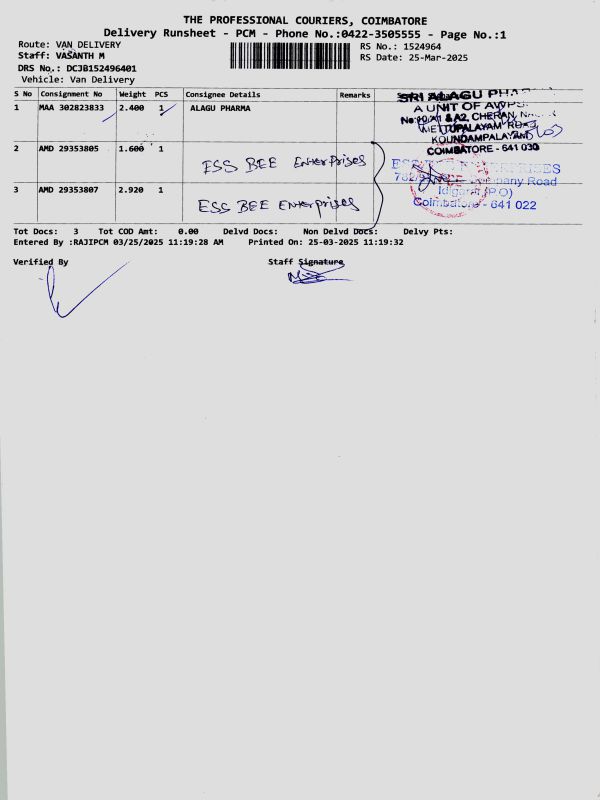 THE PROFESSIONAL COURIERS, COIMBATORE
Delivery Runsheet - PCM - Phone No.:0422-3505555 - Page No.:1
Route: VAN DELIVERY
RS No.: 1524964
Staff: VASANTH M
RS Date: 25-Mar-2025
DRS No.: DCJB152496401
Vehicle: Van Delivery
S No Consignment No Weight PCS Consignee Details Remarks
1 MAA 302823833 2.400 1 ALAGU PHARMA
SRI ALAGU
A UNIT OF
& A2, CHERAN
METTUPALAYAM ROAD,
KOUNDAMPALAYAM
COIMBATORE - 641 030
2 AMD 29353805 1.600 1 ESS BEE Enterprises
3 AMD 29353807 2.920 1 ESS BEE Enterprises
Road
Idigarai (P.O)
Coimbatore - 641 022
Tot Docs: 3 Tot COD Amt: 0.00 Delvd Docs: Non Delvd Docs: Delvy Pts:
Entered By :RAJIPCM 03/25/2025 11:19:28 AM Printed On: 25-03-2025 11:19:32
Verified By Staff Signature